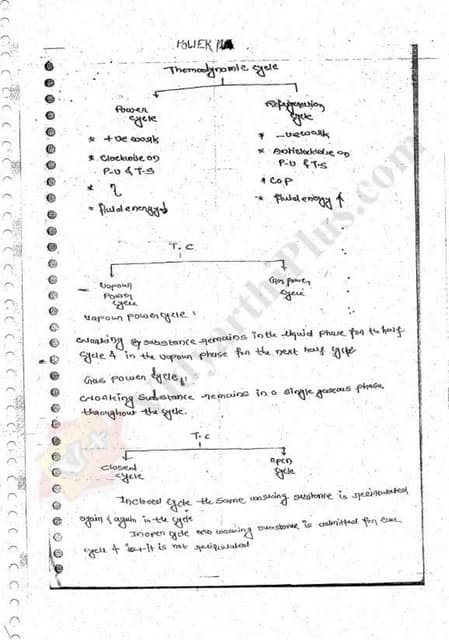 POWER
Thermodynamic cycle
Power cycle
Refrigeration cycle
* +ve work
* -ve work
* Clockwise on P-V & T-S
* Anticlockwise on P-V & T-S
* η
* COP
* fluid energy ↓
* fluid energy ↑
T.C
Vapour Power Cycle
Gas power cycle
Vapour power cycle:
Working substance remains in the liquid phase for the half
cycle & in the vapour phase for the next half cycle
Gas power cycle:
Working substance remains in a single gaseous phase
throughout the cycle.
T.C
Closed cycle
Open cycle
In closed cycle the same working substance is recirculated
again & again in the cycle
In open cycle new working substance is admitted for
cycle & it is not recirculated
VidyarthiPlus.com
V+